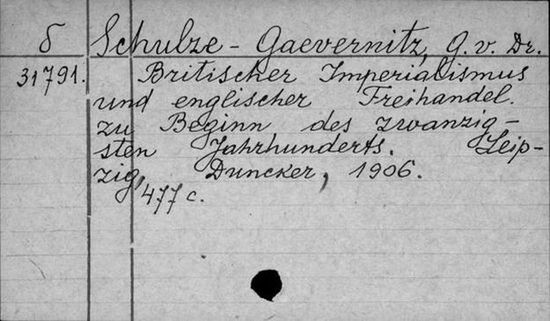 δ Schulze-Gaevernitz, G. v. Dr.
31791. Britischer Imperialismus
und englischer Freihandel.
zu Beginn des zwanzig-
sten Jahrhunderts. Leip-
zig, Duncker, 1906.
477 c.